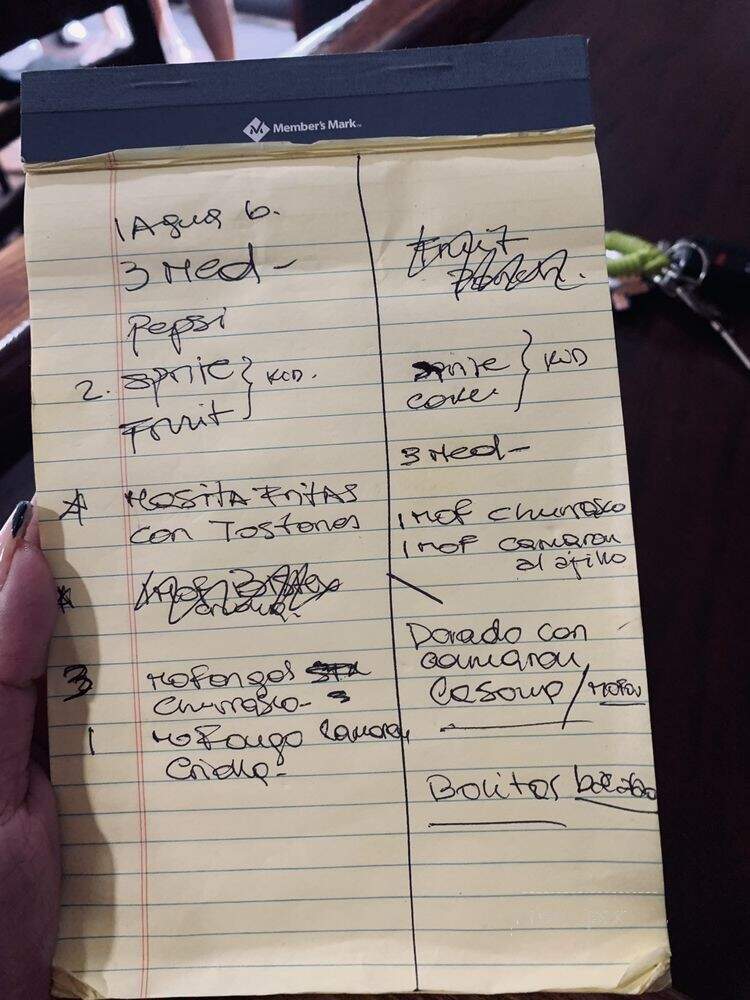 Member's Mark
1 Agua b.
3 Med -
Pepsi
2. Sprite } KID.
Fruit
Masita Fritas
con Tostones
3 Mofongos
Churrasco - 3
1 Mofongo Camaron
Criollo -
Fruit
Sprite } KID
Coke
3 Med -
1 Mof Churrasco
1 Mof camaron
al ajillo
Dorado con
camaron
/ Mofon
Bolitas